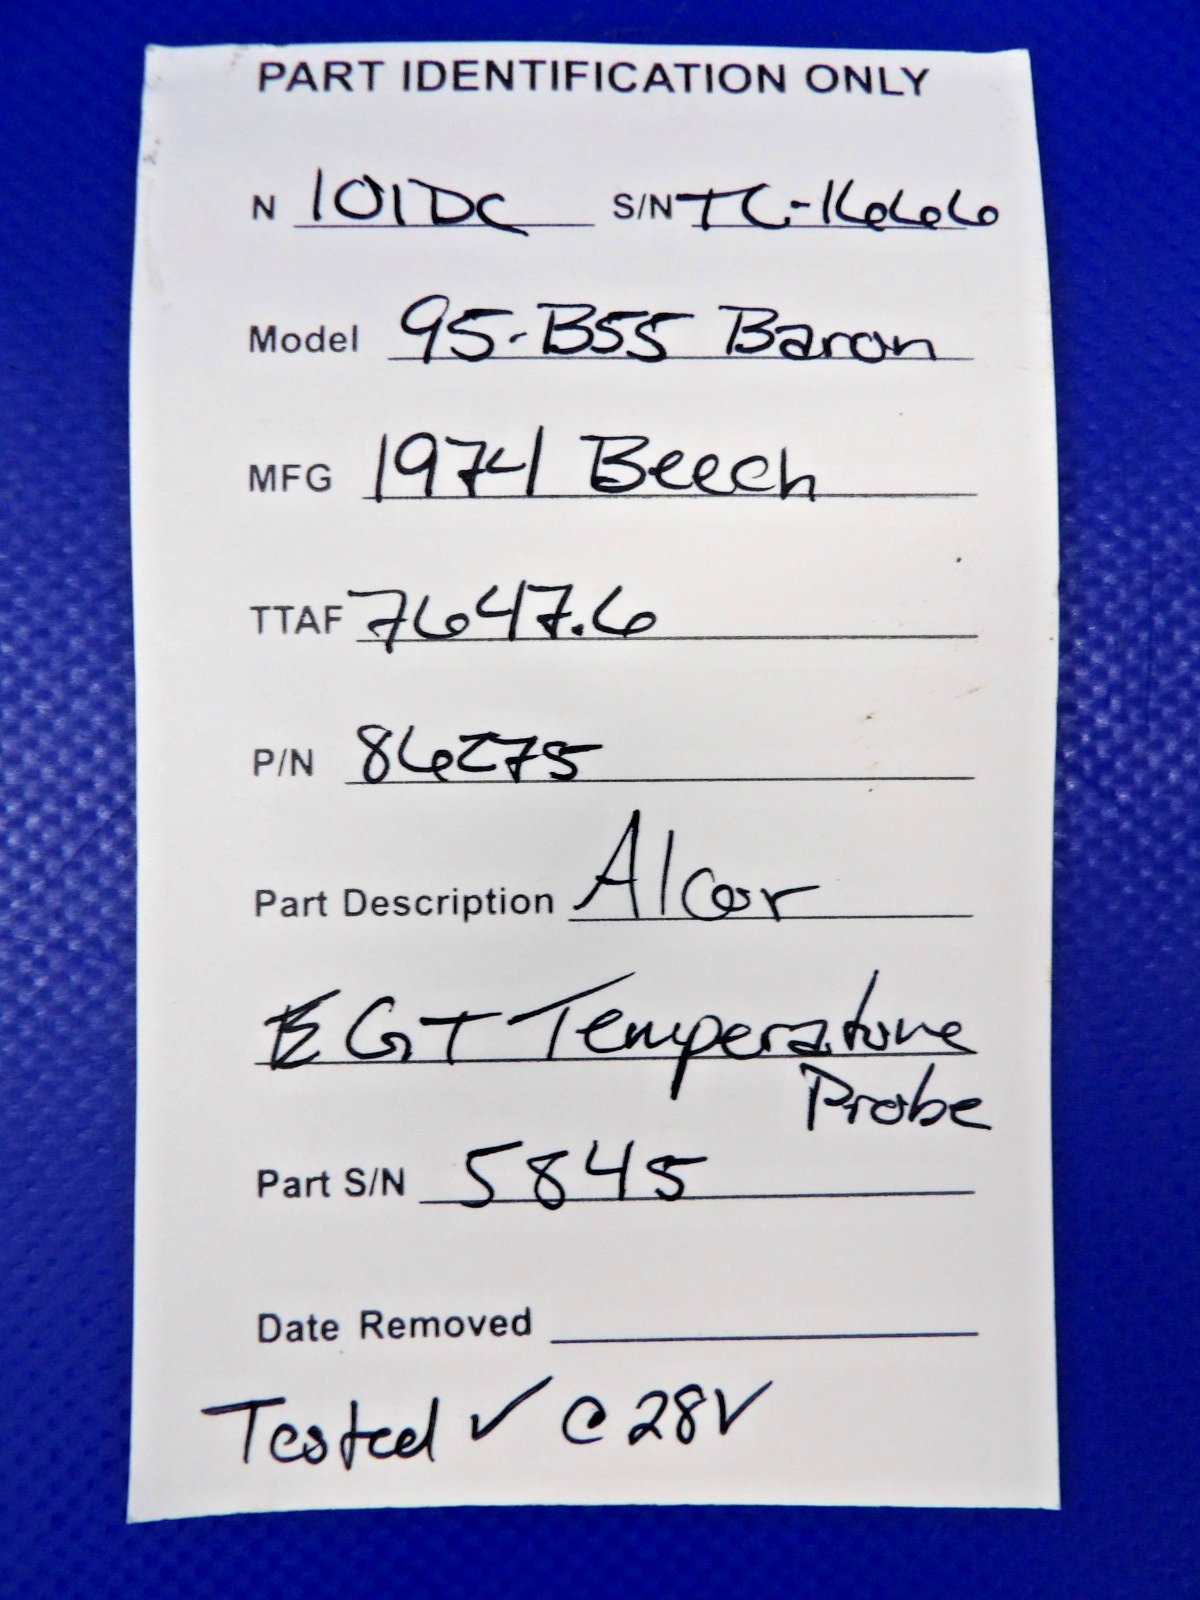 PART IDENTIFICATION ONLY
N 101DC S/N TC-1666
Model 95-B55 Baron
MFG 1974 Beech
TTAF 7647.6
P/N 86275
Part Description Alcor
EGT Temperature
Probe
Part S/N 5845
Date Removed
Tested ✓ @ 28V